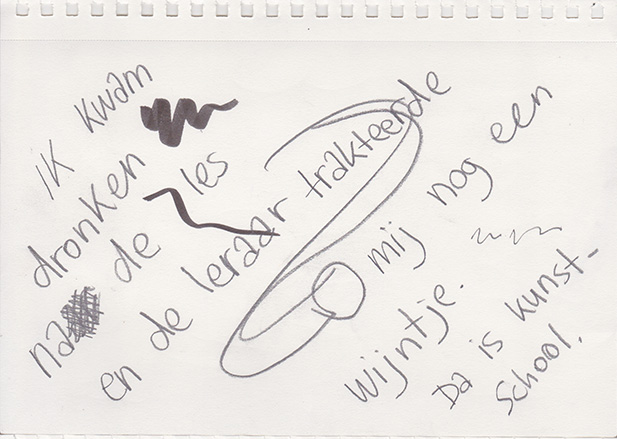 Ik kwam
dronken
na de les
en de leraar trakteerde
mij nog een
wijntje.
Da is kunst-
school.